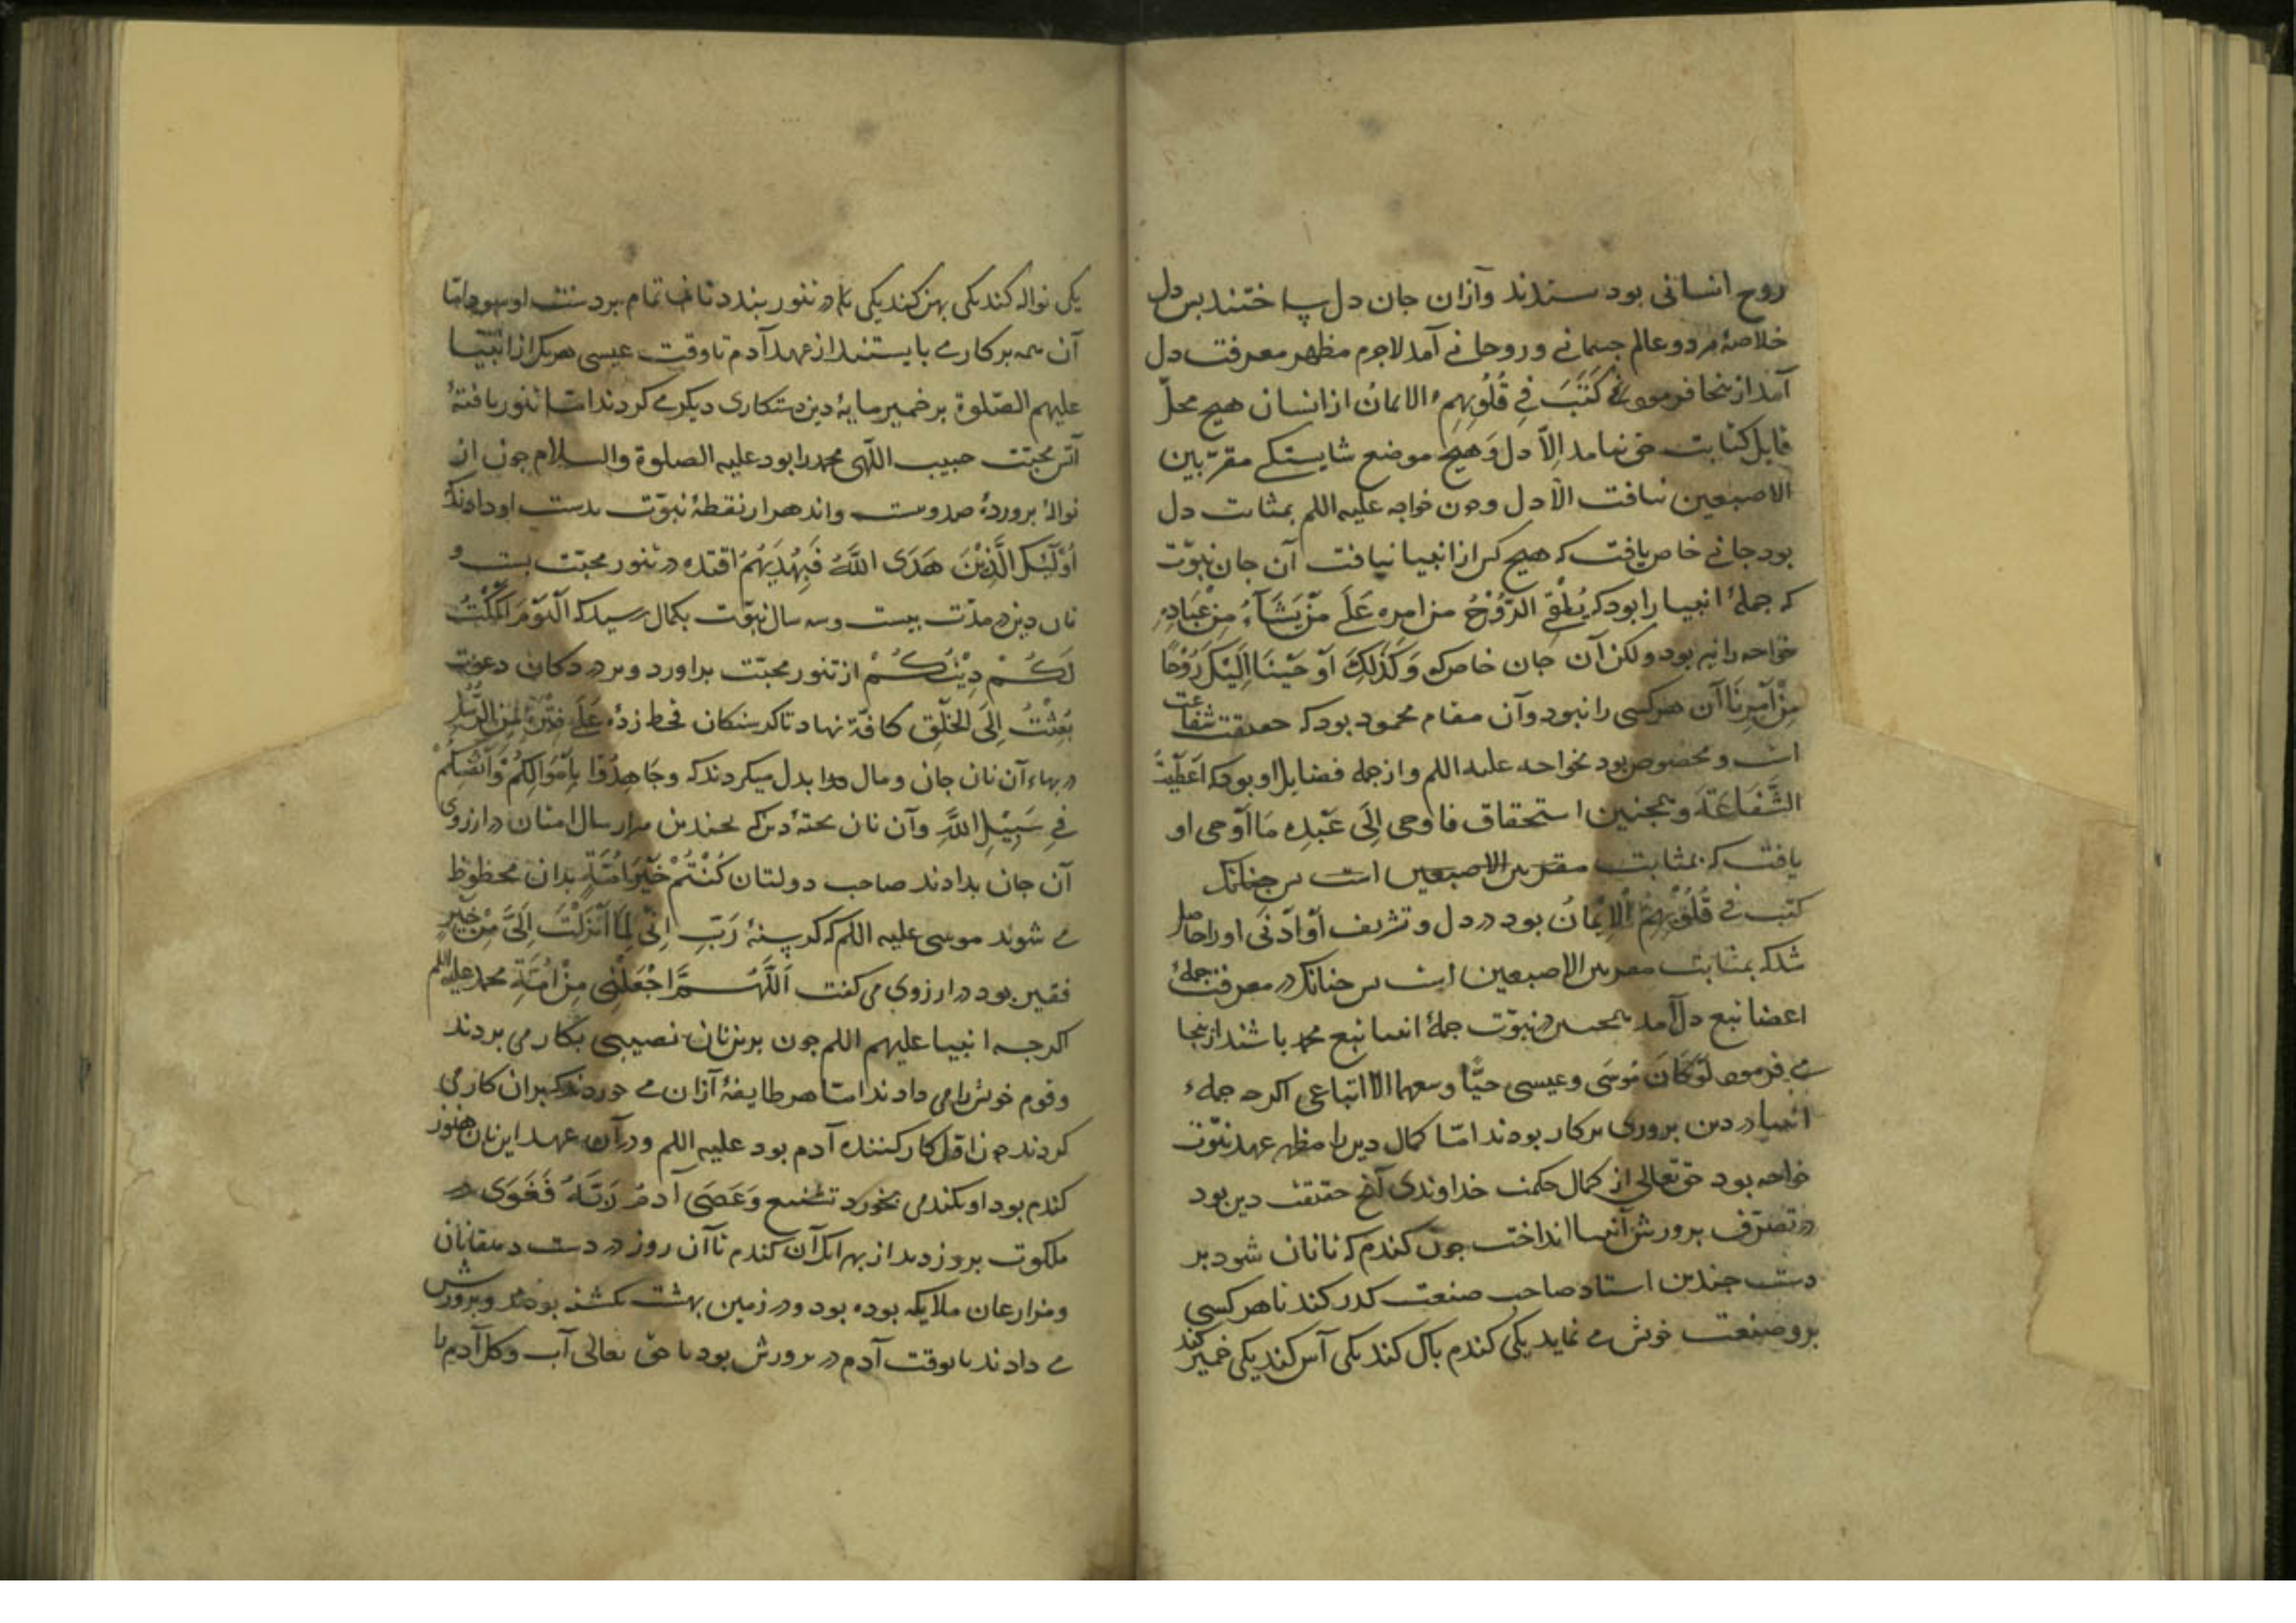 روح انسانی بود ستدند وازان جان دل ساختند بس دل
خلاصهٔ هردو عالم جسمانے و روحانے آمد لاجرم مظهر معرفت دل
آمد ازینجا فرمود كَتَبَ فِے قُلُوبِهِمُ الایمانُ از انسان هیچ محلّ
قابل کتابت حق نیامد اِلاّ دل وَهیچ موضع شایستگے مقرّ بین
الاصبعین نیافت الاّ دل وچون خواجه علیه اللم بمثابت دل
بود جانے خاص یافت که هیچ کس از انبیا نیافت آن جان نبوّت
که جملهٔ انبیا را بود که یُلْقِے الرُّوْحُ من امره عَلَے مَنْ یَشَآءُ مِنْ عِبَادِهِ
خواجه را نیز بود ولکن آن جان خاص که وَكَذٰلِكَ اَوْحَیْنَا اِلَیْكَ رُوْحًا
مِنْ اَمْرِنَا آن هرکسی را نبود وآن مقام محمود بود که حقیقت شفاعت
است ومخصوص بود بخواجه علیه اللم وازجمله فضایل او بود که اُعْطِیْتُ
الشَّفَاعَةَ وهمچنین استحقاق فاوحی اِلَی عَبْدِهِ مَا اَوْحی او
یافت که بمثابت مقر بین الاصبعین است بس چنانک
كتب فے قُلُوْبِهِمُ الْاِیْمَانُ بود در دل و تشریف اَوْاَدْنَی اورا حاصل
شد که بمثابت مقر بین الاصبعین است بس چنانک در معرفت جملهٔ
اعضا تبع دل آمد همچنین در نبوّت جملهٔ انبیا تبع محمد باشند ازینجا
مے فرمود لَوْ كَانَ مُوسَی وعیسی حیًّا وسعهما الاّ اتباعی اکرچه جملهٔ
انبیا در دین بروری برکار بودند امّا کمال دین را مظهر عهد نبوّت
خواجه بود حق تعالی از کمال حکمت خداوندی آنچ حقیقت دین بود
در تصرّف برورش انبیا انداخت چون کندم که تا نان شود بر
دست جندین استاد صاحب صنعت کذر کند تا هرکسی
برو صنعت خویش مے نماید یکی کندم باک کند یکی آس کند یکی خمیر کند
یکی نواله کند یکی بهن کند یکی در تنور بندد تا نان تمام بر دست او شود امّا
آن همه برکارے بایستند از عهد آدم تا وقت عیسی هریک از انبیا
علیهم الصّلوة برخمیر مایهٔ دین دستکاری دیکر مے کردند امّا تنور تافتهٔ
آتش محبّت حبیب اللّهی محمد را بود علیه الصلوة والسلام چون ان
نوالهٔ بروردهٔ صد وبیست واند هزار نقطهٔ نبوّت بدست او دادند که
اُولٰٓئِكَ الَّذِیْنَ هَدَی اللّٰهُ فَبِهُدٰیهُمُ اقْتَدِه در تنور محبّت بست و
نان دین در مدّت بیست وسه سال نبوّت بکمال رسید که اَلْیَوْمَ اَكْمَلْتُ
لَكُمْ دِیْنَكُمْ از تنور محبّت براورد و بر در دکان دعوت
بُعِثْتُ اِلَی الْخَلْقِ كافّة نهاد تا کرسنکان قحط زدهٔ عَلَے فَتْرَةٍ مِنَ الرُّسُلِ
در بهاء آن نان جان و مال فدا بدل میکردند که وجَاهِدُوْا بِاَمْوَالِكُمْ وَاَنْفُسِكُمْ
فِے سَبِیْلِ اللّٰهِ وآن نان بختهٔ دین که بچندین هزار سال امتان در ارزوی
آن جان بدادند صاحب دولتان كُنْتُمْ خَیْرَ اُمَّةٍ بدان محظوظ
مے شوند موسی علیه اللم که کرسنهٔ رَبِّ اِنِّی لِمَا اَنْزَلْتَ اِلَیَّ مِنْ خَیْرٍ
فقیر بود در ارزوی می کفت اَللّٰهُمَّ اجْعَلْنِی مِنْ اُمَّةِ محمد علیه اللم
اکرچه انبیا علیهم اللم چون برین نان نصیبی بکار می بردند
وقوم خویش را می دادند امّا هر طایفهٔ آزان مے خوردند که بران کار می
کردند چون اوّل کار کننده آدم بود علیه اللم ودرآن عهد این نان هنوز
کندم بود او بکندمی بخورد تشنیع وَعَصَی آدمُ رَبَّهُ فَغَوَی در
ملکوت بروزدند از بهر انک آن کندم تا آن روز در دست دهقانان
ومزارعان ملایکه بوده بود ودر زمین بهشت کشته بودند وبرورش
مے دادند تا بوقت آدم در برورش بود تا حق تعالی آب وکل آدم را